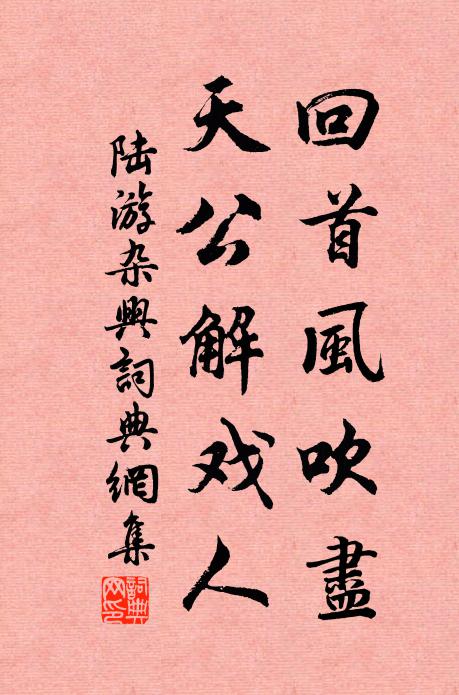 回首風吹盡
天公解戏人
陆游杂興詞典網集
詞典网印